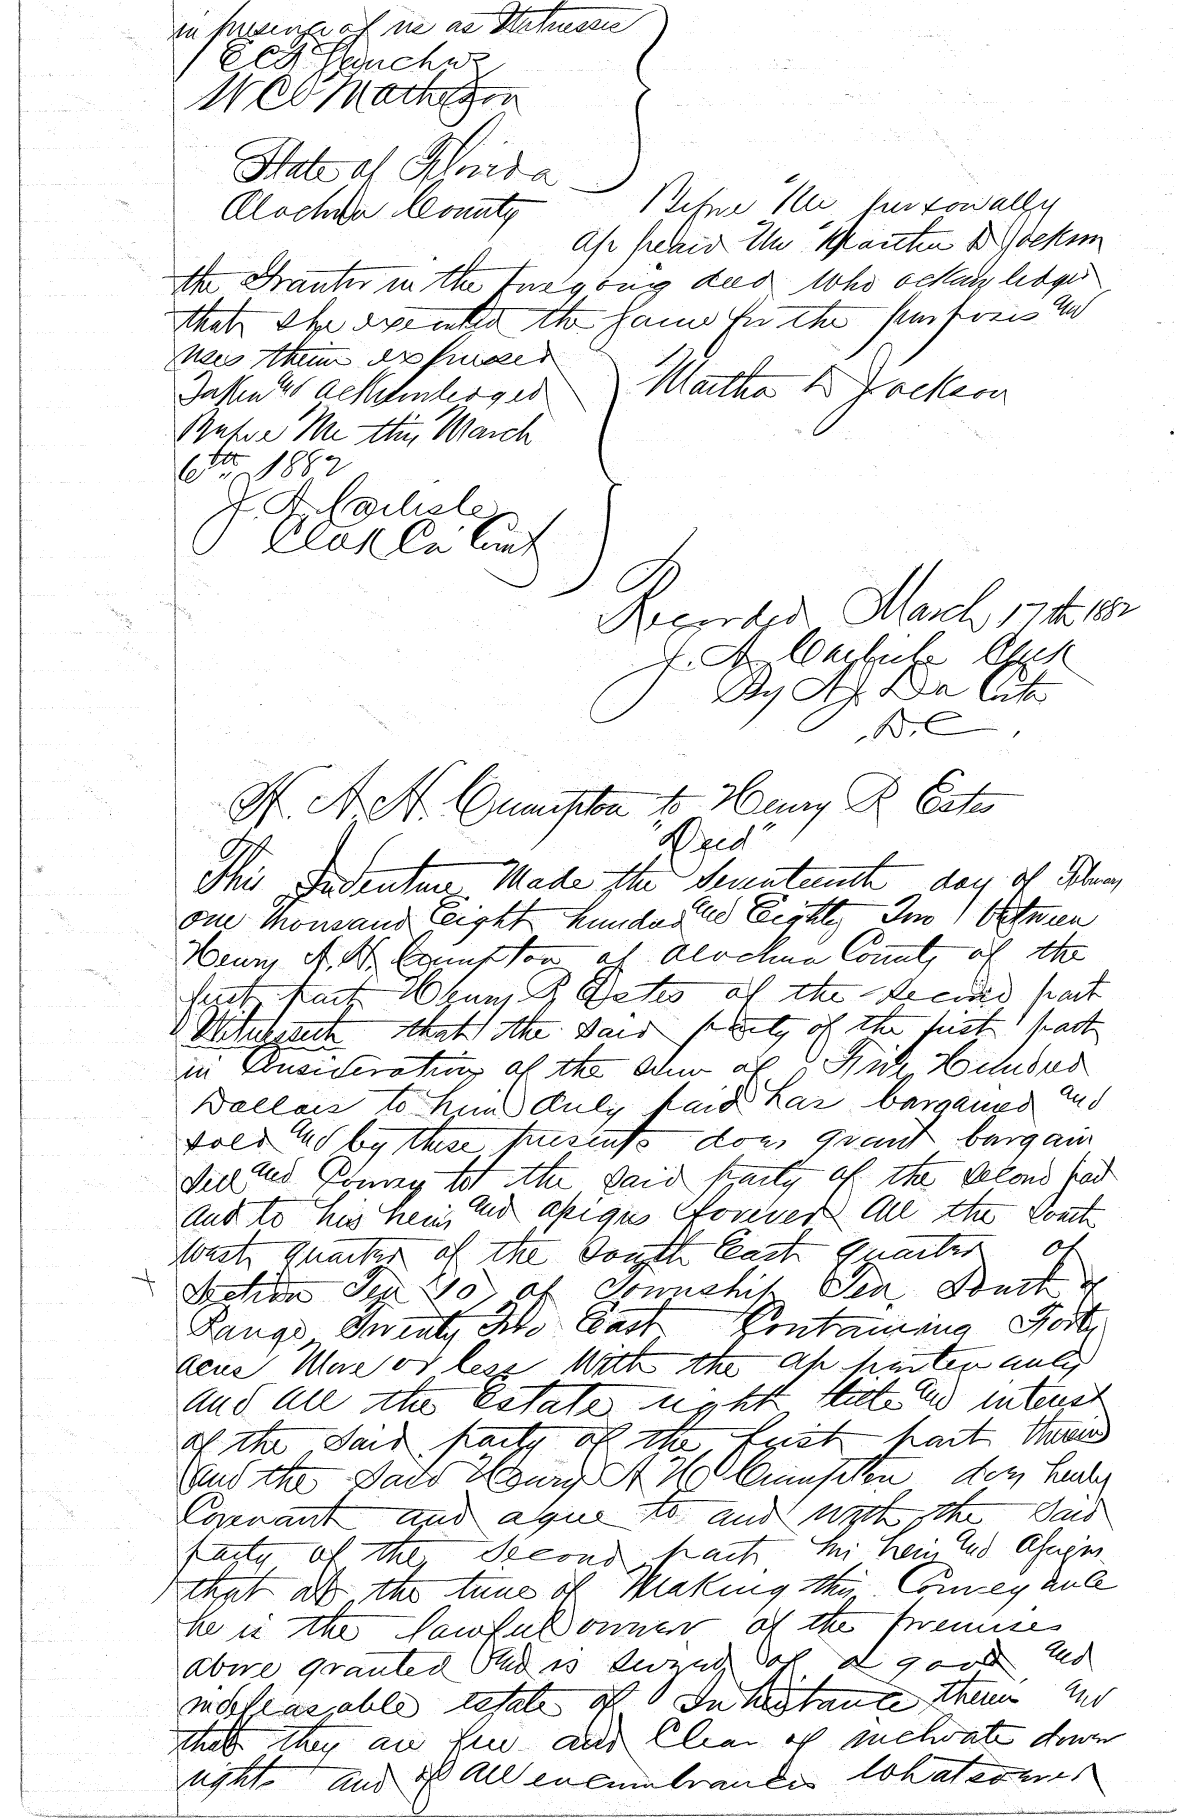 in presence of us as Witnesses
E C F Sanchez
W C O Matheson
State of Florida
Alachua County Before Me personally
appeard the Martha D Jackson
the Grantor in the foregoing deed who acknowledges
that she executed the same for the purposes and
uses therein expressed
Taken and acknowledged Martha D Jackson
Before Me this March
6th 1882
J. A. Carlisle
Clerk Co Court
Recorded March 17th 1882
J. A. Carlisle Clerk
By A. J. Da Costa
D.C.
H. A. H. Crumpton to Henry R Estes
"Deed"
This Indenture Made the Seventeenth day of February
one thousand Eight hundred and Eighty Two between
Henry A. H. Crumpton of Alachua County of the
first part Henry R Estes of the second part
Witnesseth that the said party of the first part
in Consideration of the sum of Five Hundred
Dollars to him duly paid has bargained and
sold and by these presents does grant bargain
Sell and Convey to the said party of the second part
and to his heirs and assigns forever All the South
West quarter of the South East quarter of
Section Ten (10) of Township Ten South of
Range Twenty Two East Containing Forty
acres More or less With the appurtenances
and all the Estate right title and interest
of the said party of the first part therein
and the said Henry A H Crumpton does hereby
Covenant and agree to and with the said
party of the second part his heirs and assigns
that at the time of Making this Conveyance
he is the lawful owner of the premises
above granted and is seized of a good and
indefeasable estate of Inheritance therein and
that they are free and Clear of inchoate dower
rights and of all encumbrances Whatsoever